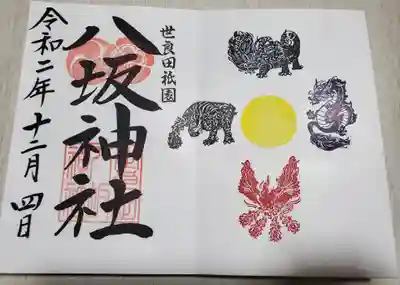 世良田祇園
八坂神社
令和二年十二月四日